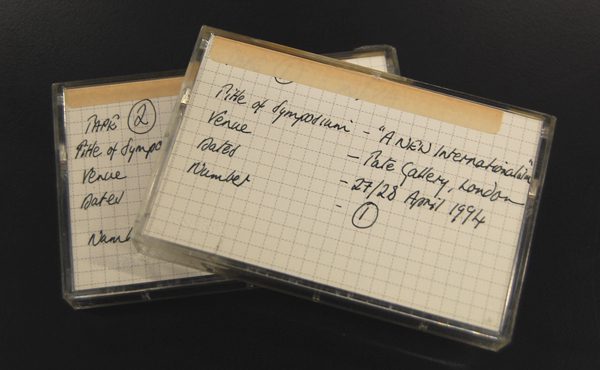 TAPE ②
Title of Sympo
Venue
Dates
Numb
Title of Symposium - "A NEW Internationalism"
Venue - Tate Gallery, London
Dates - 27/28 April 1994
Number - ①